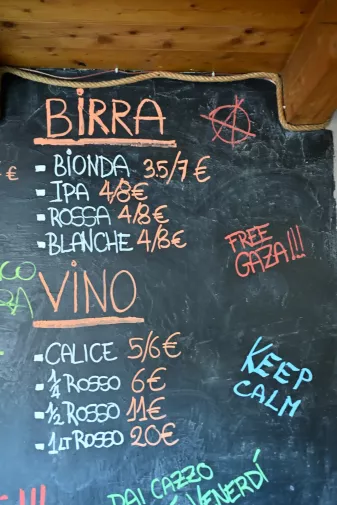 BIRRA
- BIONDA 3.5/7€
- IPA 4/8€
- ROSSA 4/8€
- BLANCHE 4/8€
FREE
GAZA!!!
VINO
- CALICE 5/6€
- 1/4 ROSSO 6€
- 1/2 ROSSO 11€
- 1LT ROSSO 20€
KEEP
CALM
DAI CAZZO
VENERDÍ